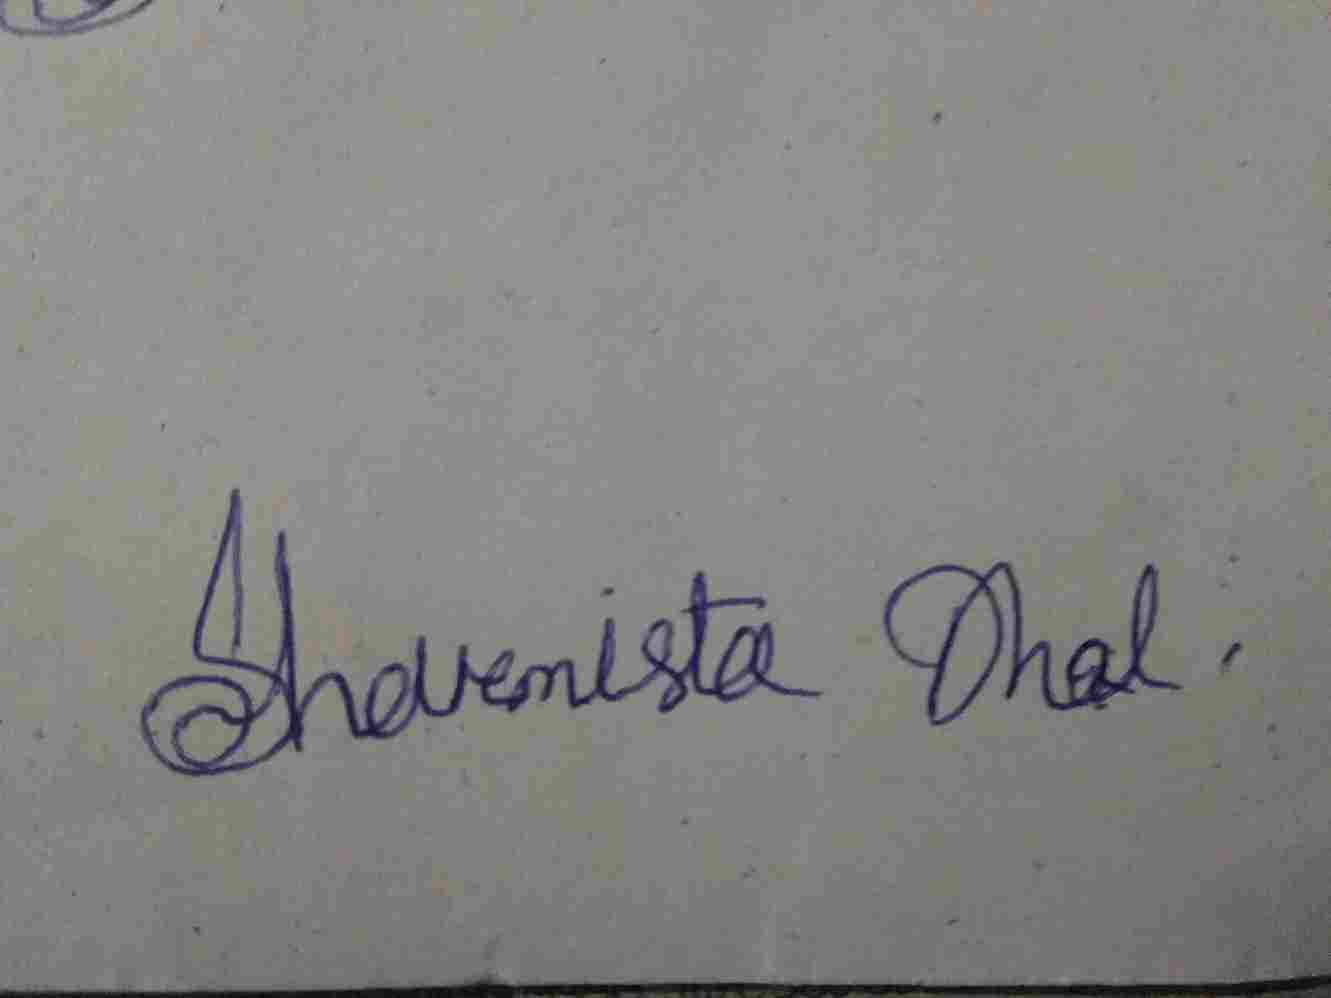 Sharmista Dhal.